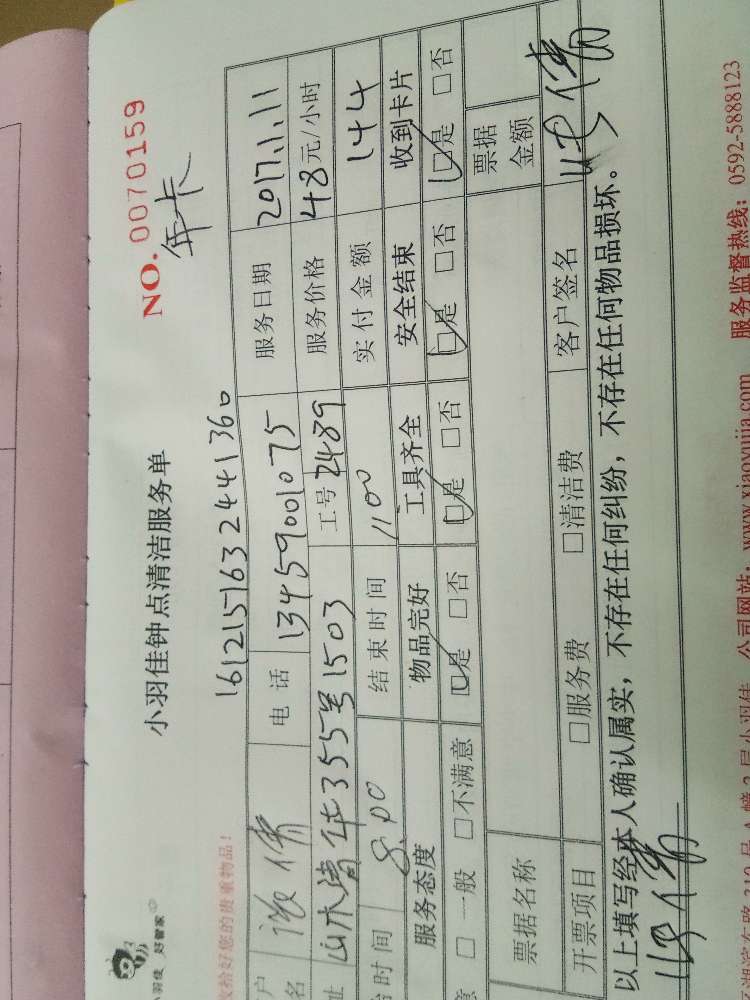 小羽佳钟点清洁服务单
NO. 0070159
年卡
小羽佳 好管家
收拾好您的贵重物品！
16121516324441360
户名 电话 13459001075 服务日期 2017.1.11
址 山水清华355号1503 工号 2489 服务价格 48元/小时
时间 8:00 结束时间 1100 实付金额 144
服务态度 物品完好 工具齐全 安全结束 收到卡片
意 □一般 □不满意 □是 □否 □是 □否 □是 □否 □是 □否
票据名称 票据金额
开票项目 □服务费 □清洁费 客户签名
以上填写经本人确认属实，不存在任何纠纷，不存在任何物品损坏。
公司网站：www.xiaoyujia.com 服务监督热线：0592-5888123